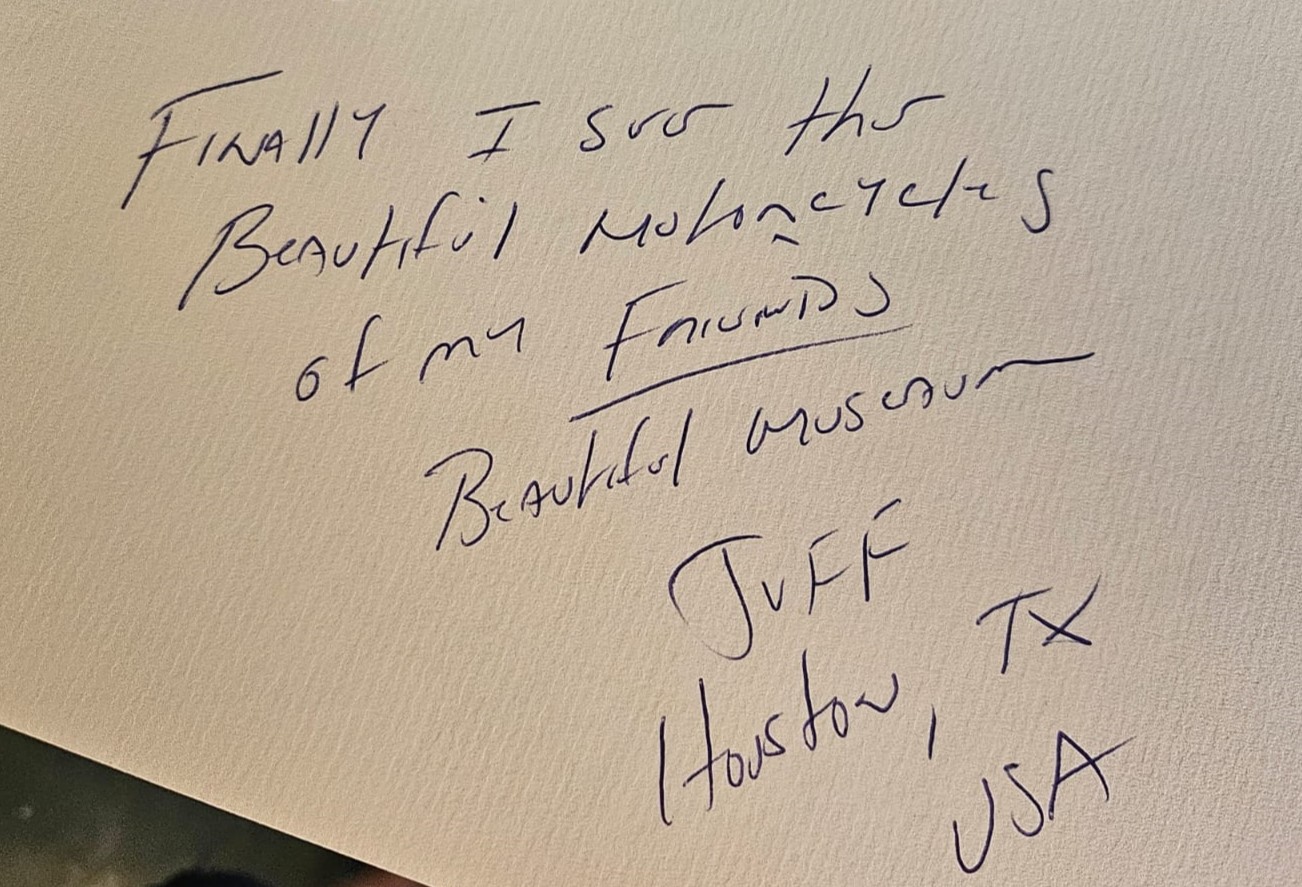 Finally I see the
Beautiful Motorcycles
of my Friends
Beautiful museaum
JEFF
Houston, TX
USA